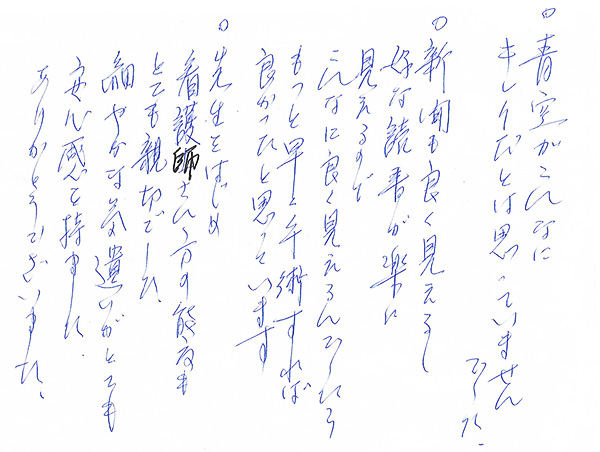 ○青空がこんなに
キレイだとは思っていません
でした。
○新聞も良く見えるし
好な読書が楽に
見えるので
こんなに良く見えるんでしたら
もっと早く手術すれば
良かったと思っています
○先生をはじめ
看護師さん方の態度も
とても親切でした。
細やかな気遣いがとても
安心感を持ました。
ありがとうございました。